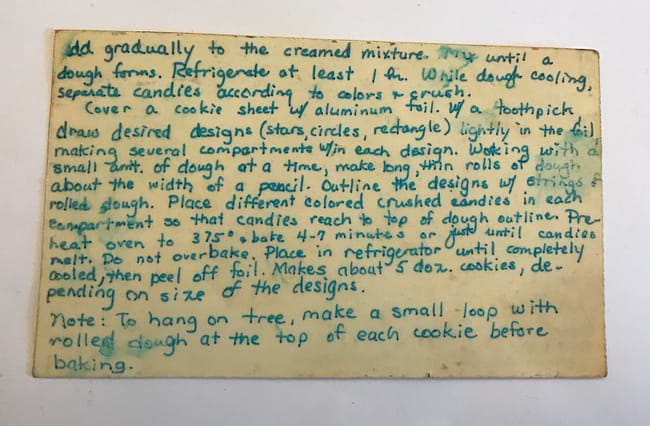 dd gradually to the creamed mixture. Mix until a
dough forms. Refrigerate at least 1 hr. While dough cooling,
separate candies according to colors & crush.
Cover a cookie sheet w/ aluminum foil. W/ a toothpick
draw desired designs (stars, circles, rectangle) lightly in the foil,
making several compartments w/in each design. Woking with a
small amt. of dough at a time, make long, thin rolls of dough
about the width of a pencil. Outline the designs w/ strings of
rolled dough. Place different colored crushed candies in each
compartment so that candies reach to top of dough outline. Pre-
heat oven to 375° & bake 4-7 minutes or just until candies
melt. Do not overbake. Place in refrigerator until completely
cooled, then peel off foil. Makes about 5 doz. cookies, de-
pending on size of the designs.
Note: To hang on tree, make a small loop with
rolled dough at the top of each cookie before
baking.